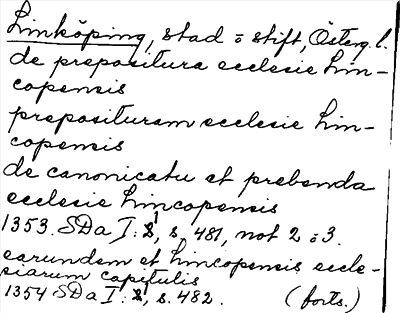 Linköping, stad o stift, Österg. l.
de prepositura ecclesie Lin-
copensis
preposituram ecclesie Lin-
copensis
de canonicatu et prebenda
ecclesie Lincopensis
1353. SDa I:1, s. 481, not 2 o 3.
earundem et Lincopensis eccle-
siarum capitulis
1354 SDa I:1, s. 482. (forts.)